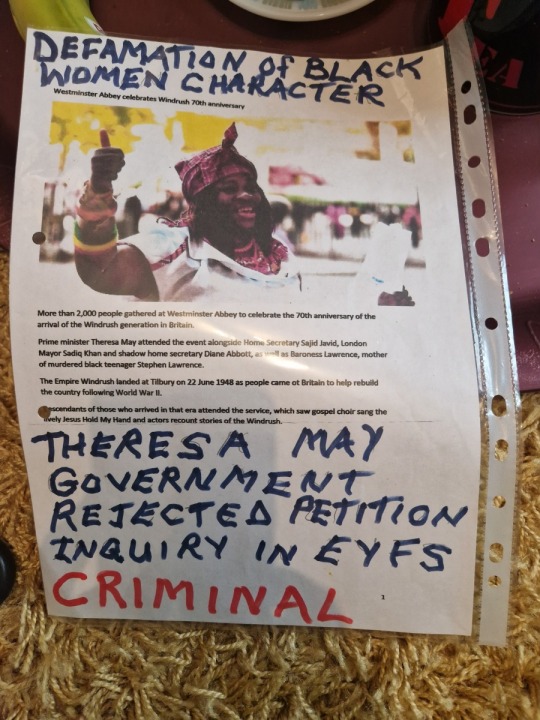 DEFAMATION OF BLACK
WOMEN CHARACTER
Westminster Abbey celebrates Windrush 70th anniversary
More than 2,000 people gathered at Westminster Abbey to celebrate the 70th anniversary of the
arrival of the Windrush generation in Britain.
Prime minister Theresa May attended the event alongside Home Secretary Sajid Javid, London
Mayor Sadiq Khan and shadow home secretary Diane Abbott, as well as Baroness Lawrence, mother
of murdered black teenager Stephen Lawrence.
The Empire Windrush landed at Tilbury on 22 June 1948 as people came ot Britain to help rebuild
the country following World War II.
Descendants of those who arrived in that era attended the service, which saw gospel choir sang the
lively Jesus Hold My Hand and actors recount stories of the Windrush.
THERESA MAY
GOVERNMENT
REJECTED PETITION
INQUIRY IN EYFS
CRIMINAL
1